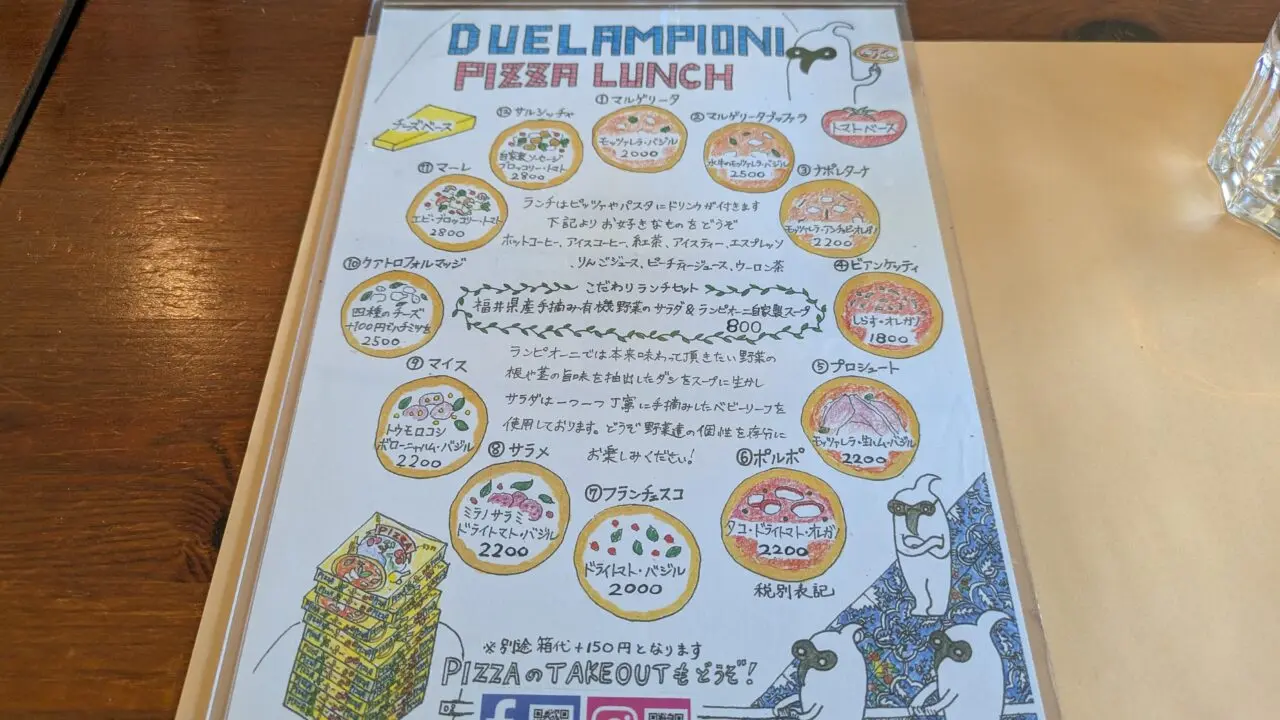 DUELAMPIONI
PIZZA LUNCH
チーズベース
トマトベース
① マルゲリータ
モッツァレラ・バジル
2000
② マルゲリータブッファラ
水牛のモッツァレラ・バジル
2500
③ ナポレターナ
モッツァレラ・アンチョビ・オレガノ
2200
④ ビアンケッティ
しらす・オレガノ
1800
⑤ プロシュート
モッツァレラ・生ハム・バジル
2200
⑥ ポルポ
タコ・ドライトマト・オレガノ
2200
⑦ フランチェスコ
ドライトマト・バジル
2000
⑧ サラメ
ミラノサラミ
ドライトマト・バジル
2200
⑨ マイス
トウモロコシ
ボローニャハム・バジル
2200
⑩ クアトロフォルマッジ
四種のチーズ
+100円でハチミツ
2500
⑪ マーレ
エビ・ブロッコリー・トマト
2800
⑫ サルシッチャ
自家製ソーセージ
ブロッコリー・トマト
2800
ランチはピッツァやパスタにドリンクが付きます
下記よりお好きなものをどうぞ
ホットコーヒー、アイスコーヒー、紅茶、アイスティー、エスプレッソ
、りんごジュース、ピーチティージュース、ウーロン茶
こだわりランチセット
福井県産手摘み有機野菜のサラダ&ランピオーニ自家製スープ
800
ランピオーニでは本来味わって頂きたい野菜の
根や茎の旨味を抽出したダシをスープに生かし
サラダは一つ一つ丁寧に手摘みしたベビーリーフを
使用しております。どうぞ野菜達の個性を存分に
お楽しみください!
税別表記
※別途箱代+150円となります
PIZZAのTAKEOUTもどうぞ!
PIZZA